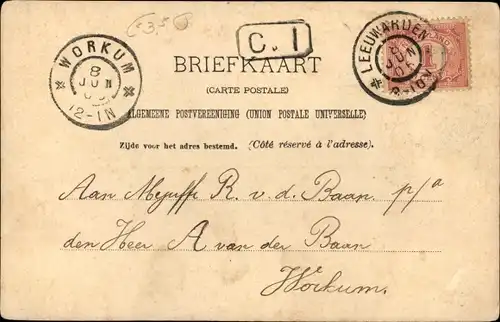 3,50
C. 1
WORKUM
8
JUN
12-1N
LEEUWARDEN
8
JUN
05
1
BRIEFKAART
(CARTE POSTALE)
ALGEMEENE POSTVEREENIGING (UNION POSTALE UNIVERSELLE)
Zijde voor het adres bestemd. (Côté réservé à l'adresse).
Aan Mejuffr R. v. d. Baan. p/a
den Heer A van der Baan
Workum.